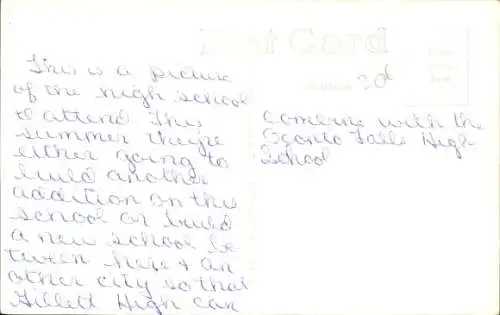 This is a picture
of the high school
I attend. This
summer they're
either going to
build another
addition on this
school or build
a new school be-
tween here & an
other city so that
Gillett High can
combine with the
Oconto Falls High
School
Post Card
20